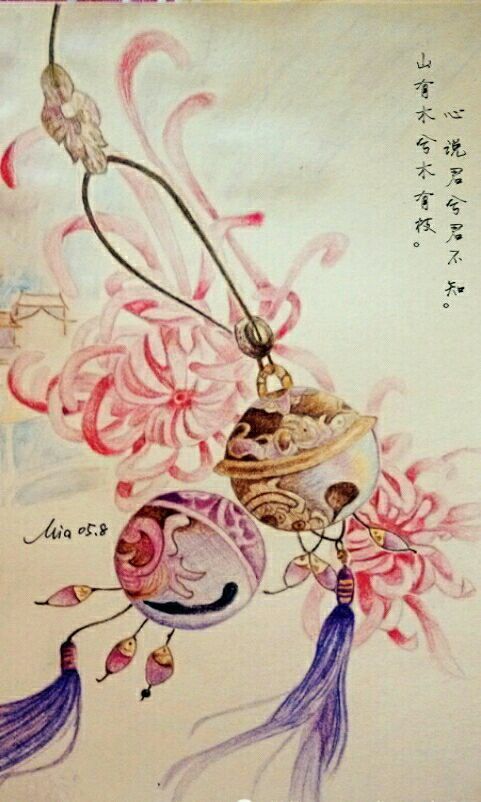 山有木兮木有枝。
心说君兮君不知。
Mia 05.8